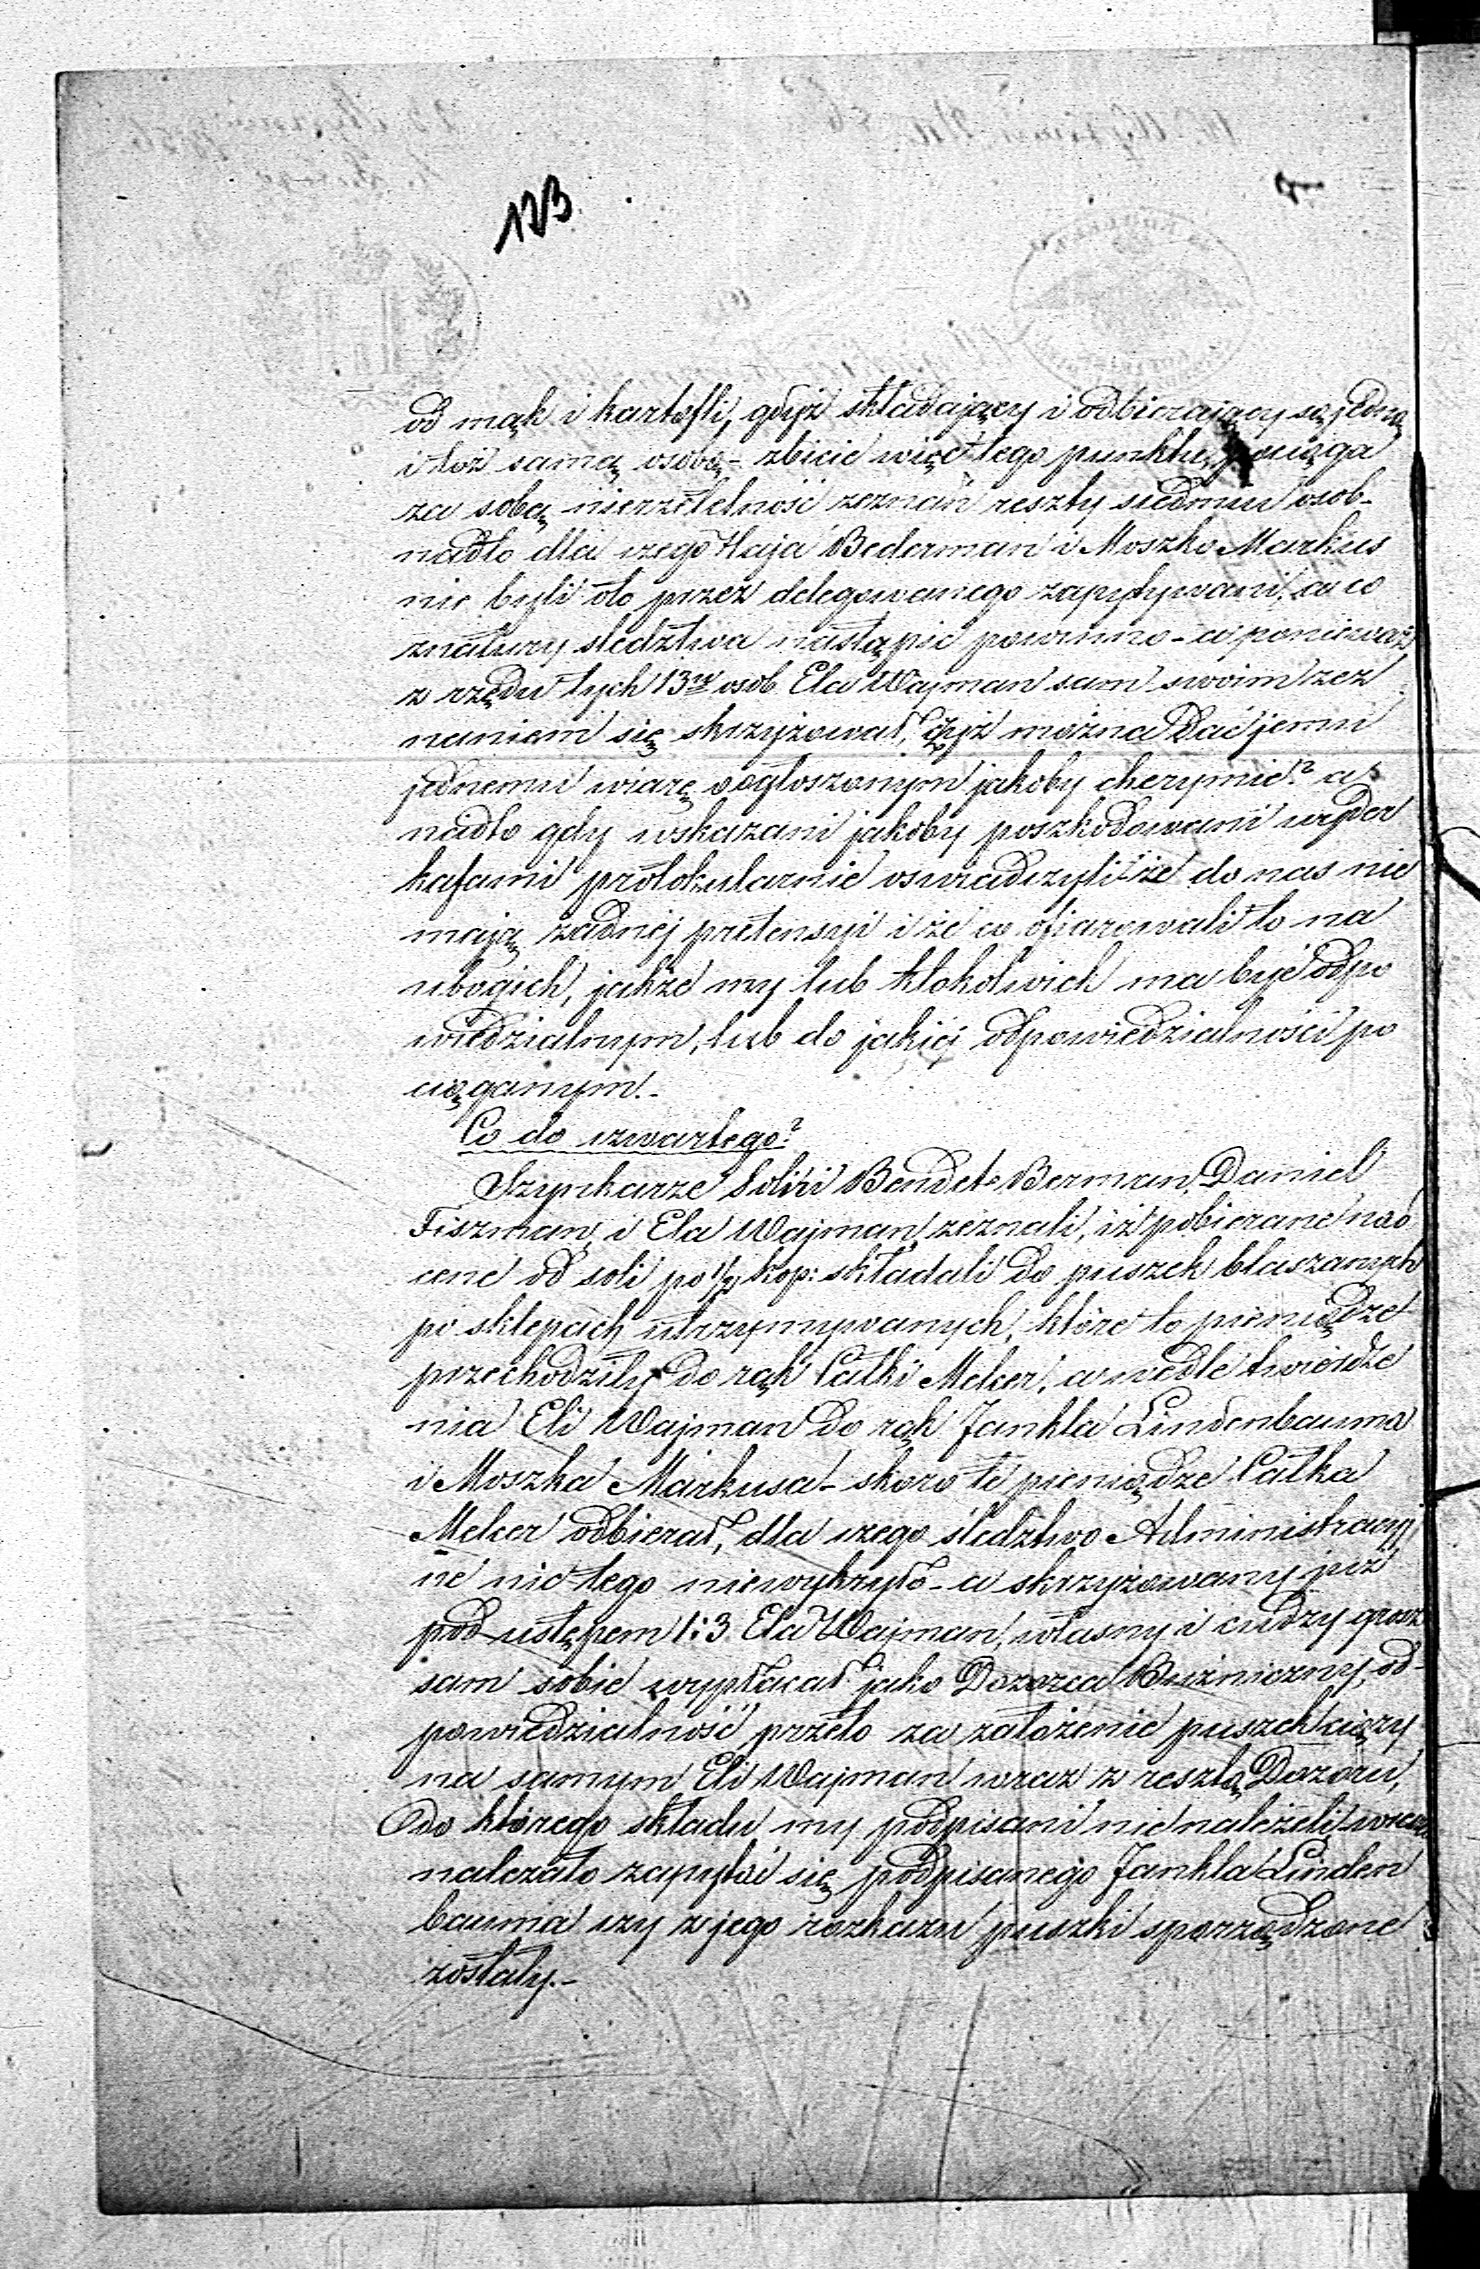 123
od mąk i kartofli, gdyż składający i odbierający są jedną
i toż samą osobą - zbicie więc tego punktu, pociąga
za sobą nierzetelność zeznań reszty siedmiu osob -
nadto dla czego Haja Bederman i Moszko Markus
nie byli oto przez delegowanego zapytywani, a co
znatury śledztwa nastąpić powinno - a ponieważ
z rzędu tych 13tu osob Ela Wajman sam swoim zez
naniem się skrzyżował, czyż można dać jemu
jednemu wiarę o ogłoszonym jakoby cherymie? a
nadto gdy wskazani jakoby poszkodowani wyder
kafami protokularnie oswiadczyli że do nas nie
mają żadnéj pretensyi i że co ofiarowali to na
ubogich, jakże my lub ktokolwiek ma być odpo
wiedzialnym, lub do jakiéj odpowiedzialności po
ciąganym.-
Co do czwartego?
Szynkarze Soli Bendet Berman, Daniel
Fiszman, i Ela Wajman zeznali, iż pobierane nad
cene od soli po 1/2 kop: składali do puszek blaszanych
po sklepach utrzymywanych, które to pieniądze
przechodziły do rąk Całki Melcer, a wedle twierdze
nia Eli Wajman do rąk Jankla Lindenbauma
i Moszka Markusa - skoro te pieniądze Całka
Melcer odbierał, dla czego śledztwo Administracyj
ne nic tego niewykryło - a skrzyżowany już
pod ustępem 1: 3 Ela Wajman, własny i cudzy grosz
sam sobie wypłacał jako Dozorca Bużniczny, od-
powiedzialność przeto za założenie puszek ciąży
na samym Eli Wajman wraz z resztą Dozoru,
do którego składu my podpisani nie należeli,
należało zapytać się podpisanego Jankla Linden
bauma czy z jego rozkazu puszki sporządzone
zostały.-